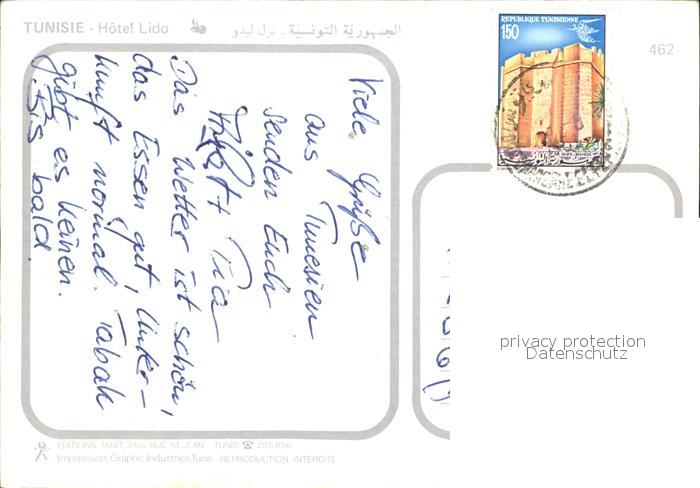 TUNISIE - Hôtel Lido
الجمهورية التونسية - نزل ليدو
REPUBLIQUE TUNISIENNE
150
462
Viele Grüße
aus Tunesien
senden Euch
+ Pia
Das Wetter ist schön,
das Essen gut, Unter-
kunft normal. Tabak
gibt es keinen.
Bis bald.
privacy protection
Datenschutz
EDITIONS TANIT 3 bis RUE ST JEAN TUNIS ☎ 255.856
Impression: Graphic Industries, Tunis REPRODUCTION INTERDITE